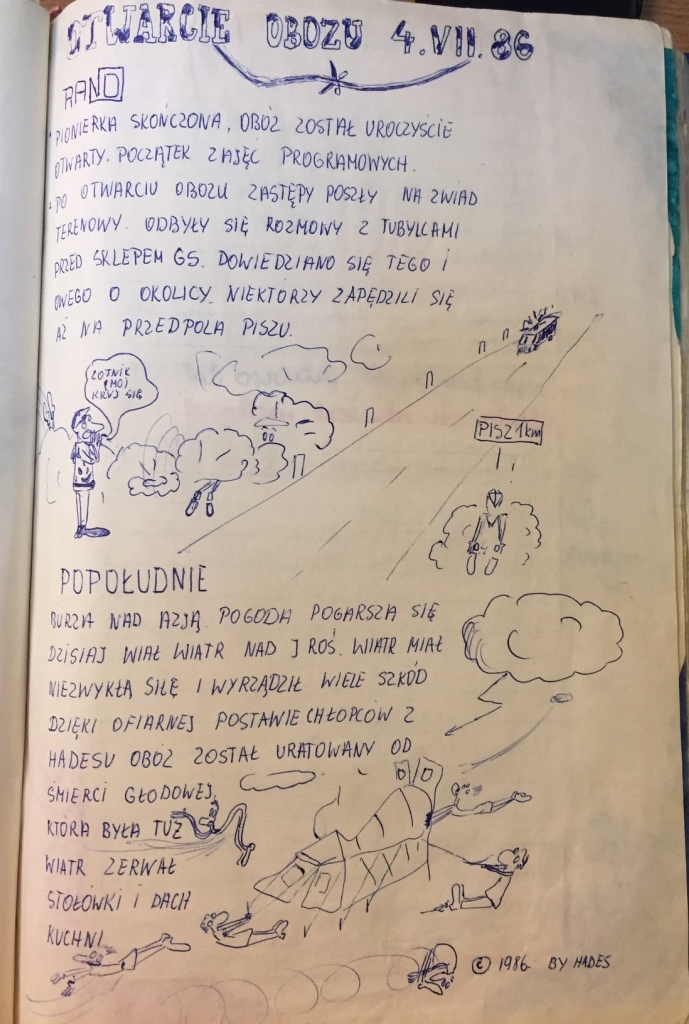 OTWARCIE OBOZU 4.VII.86
RANO
PIONIERKA SKOŃCZONA, OBÓZ ZOSTAŁ UROCZYŚCIE
OTWARTY. POCZĄTEK ZAJĘĆ PROGRAMOWYCH.
PO OTWARCIU OBOZU ZASTĘPY POSZŁY NA ZWIAD
TERENOWY. ODBYŁY SIĘ ROZMOWY Z TUBYLCAMI
PRZED SKLEPEM GS. DOWIEDZIANO SIĘ TEGO I
OWEGO O OKOLICY. NIEKTÓRZY ZAPĘDZILI SIĘ
AŻ NA PRZEDPOLA PISZU.
LOTNIK
MÓJ
KRYJ SIĘ
PISZ 1km
POPOŁUDNIE
BURZA NAD AZJĄ. POGODA POGARSZA SIĘ
DZISIAJ WIAŁ WIATR NAD J ROŚ. WIATR MIAŁ
NIEZWYKŁĄ SIŁĘ I WYRZĄDZIŁ WIELE SZKÓD
DZIĘKI OFIARNEJ POSTAWIE CHŁOPCÓW Z
HADESU OBÓZ ZOSTAŁ URATOWANY OD
ŚMIERCI GŁODOWEJ,
KTÓRA BYŁA TUŻ
WIATR ZERWAŁ
STOŁÓWKI I DACH
KUCHNI
© 1986. BY HADES